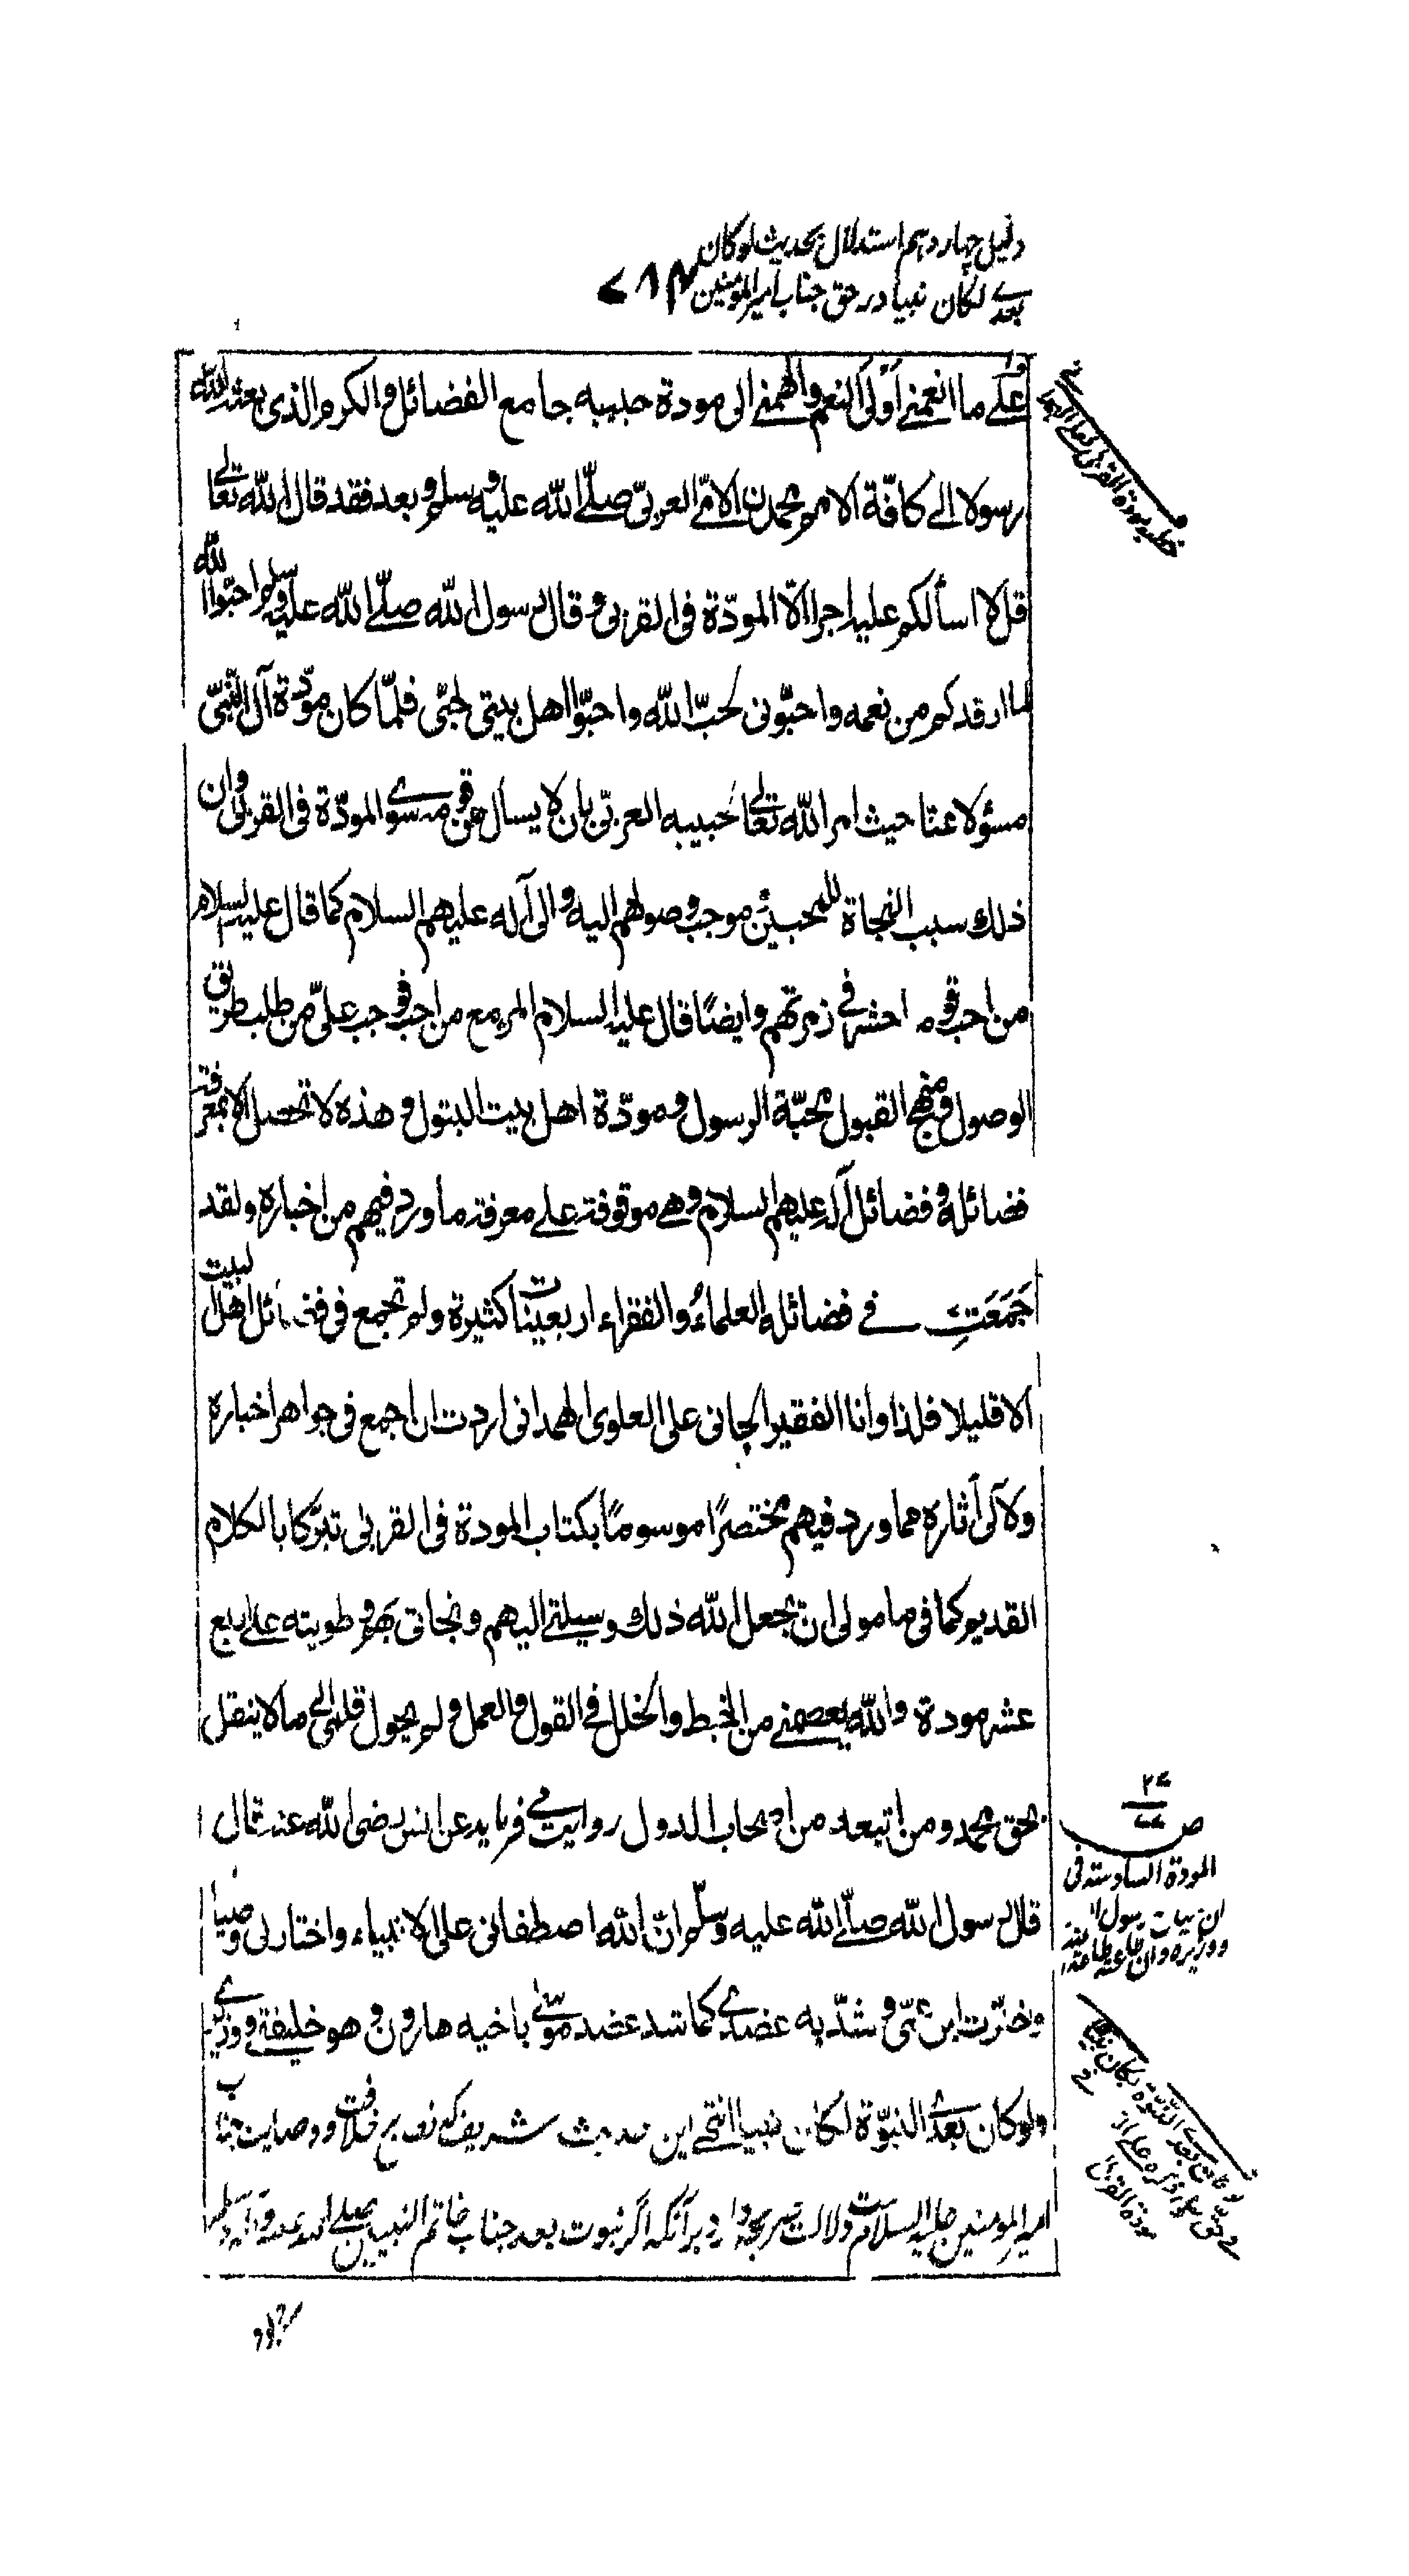 دلیل چهاردهم استدلال بحدیث لو کان
بعدے لکان نبیا در حق جناب امیر المؤمنین ۷۱۳
علے ما انعمنے اولی النعم والهمنے الی مودة حبیبه جامع الفضائل والکرم الذی بعثه الله
رسولا الے کافة الامم محمدن الامی العربی صلے الله علیه وسلم وبعد فقد قال الله تعالے
قل لا اسألکم علیه اجرا الا المودة فی القربی وقال رسول الله صلے الله علیه وسلم احبوا الله
لما ارفدکم من نعمه واحبونی لحب الله واحبوا اهل بیتی لحبی فلما کان مودة آل النبی
مسؤلا عنا حیث امر الله تعالے لحبیبه العربی بان لا یسأل عن قومه سوے المودة فی القربی وان
ذلك سبب النجاة للمحبین وموجب وصولهم الیه والی آله علیهم السلام کما قال علیه السلام
من احب قوما احشر فے زمرتهم وایضا قال علیه السلام المرء مع من احب فوجب علی من طلب طریق
الوصول ومنهج القبول محبة الرسول ومودة اهل بیت البتول وهذه لا تحصل الا بمعرفة
فضائله وفضائل آله علیهم السلام وهے موقوفة علے معرفة ما ورد فیهم من اخباره ولقد
جمعت فے فضائل العلماء والفقراء اربعینات کثیرة ولم تجمع فی فضائل اهل البیت
الا قلیلا فلذا وانا الفقیر الجانی علی العلوی الهمدانی اردت ان اجمع فی جواهر اخباره
ولآلی آثاره مما ورد فیهم مختصرا موسوما بکتاب المودة فی القربی تبرکا بالکلام
القدیم کما فی مامولی ان یجعل الله ذلك وسیلتے الیهم ونجاتی بهم وطویته علے اربع
عشر مودة والله یعصمنے من الخبط والخلل فے القول والعمل ولم یحول قلمی الی ما لا ینقل
بحق محمد ومن اتبعه من اصحاب الدول روایت مے فرماید عن انس رضی الله عنه قال
قال رسول الله صلے الله علیه وسلم ان الله اصطفانی علی الانبیاء واختار لی وصیا
وخیرت ابن عمی وشد به عضدے کما شد عضد موسے باخیه هارون وهو خلیفتے ووزیرے
ولو کان بعدے النبوة لکان نبیا انتهے این حدیث شریف که نص بر خلافت ووصایت جناب
امیر المؤمنین علیه السلام ست دلالت صریحه دارد برآنکه اگر نبوت بعد جناب خاتم النبیین صلے الله علیه وآله وسلم
خطبه مودة القربی
ص
المودة السادسة فی
ان بیات رسول الله
ووزیره وان طاعته طاعة الله
مودة القربی